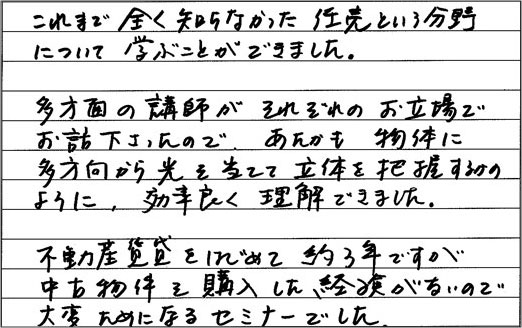 これまで全く知らなかった任売という分野
について学ぶことができました。
多方面の講師がそれぞれのお立場で
お話下さったので、あたかも物体に
多方向から光を当てて立体を把握するかの
ように、効率良く理解できました。
不動産賃貸をはじめて約3年ですが
中古物件を購入した経験がないので
大変ためになるセミナーでした。